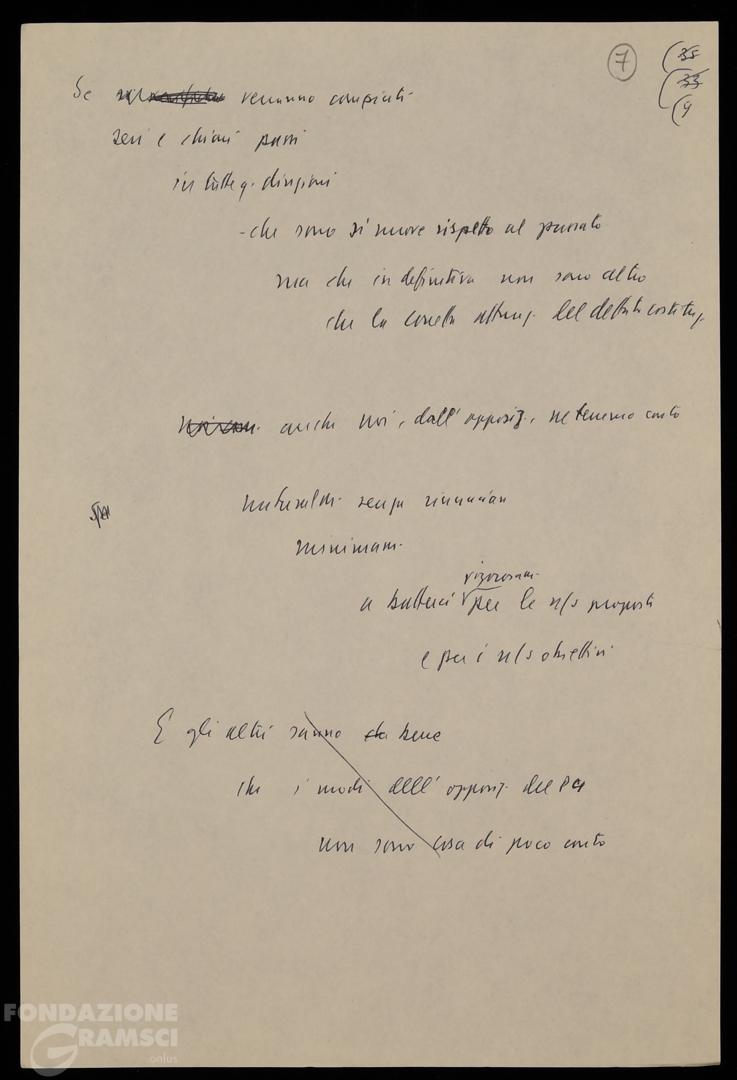 7
(35
(33
(4
Se verranno compiuti
seri e chiari passi
in tutte q. direzioni
- che sono sì nuove rispetto al passato
ma che in definitiva non sono altro
che la corretta attuaz. del dettato costituz.
anche noi, dall'opposiz., ne terremo conto
naturalm. senza rinunciare
minimam.
rigorosam.
a batterci per le n/s proposte
e per i n/s obiettivi
E gli altri sanno bene
che i modi dell'opposiz. del PCI
non sono cosa di poco conto
FONDAZIONE
GRAMSCI
onlus